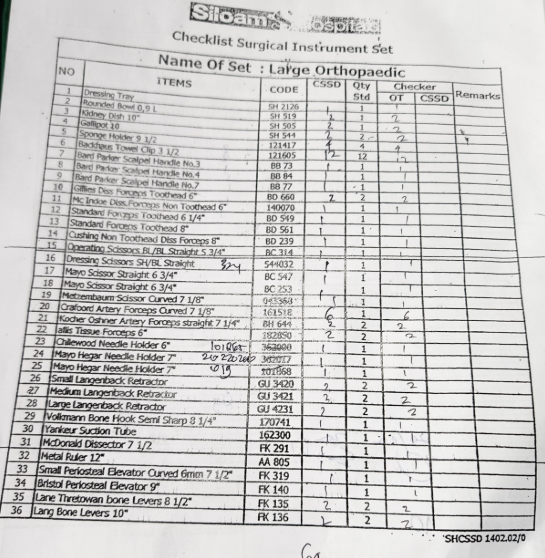 Siloam Hospitals
Checklist Surgical Instrument Set
Name Of Set : Large Orthopaedic
NO ITEMS CODE CSSD Qty Std Checker OT CSSD Remarks
1 Dressing Tray SH 2126 1 1
2 Rounded Bowl 0,9 L SH 519 1
3 Kidney Dish 10" SH 505 2 2
4 Gallipot 10 SH 544 2 2 2
5 Sponge Holder 9 1/2 121417 4 4 4
6 Backhaus Towel Clip 3 1/2 121605 12 12 12
7 Bard Parker Scalpel Handle No.3 BB 73 1 1 1
8 Bard Parker Scalpel Handle No.4 BB 84 1 1
9 Bard Parker Scalpel Handle No.7 BB 77 1 1
10 Gillies Diss Forceps Toothead 6" BD 660 2 2 2
11 Mc Indoe Diss.Forceps Non Toothead 6" 140070 1 1
12 Standard Forceps Toothead 6 1/4" BD 549 1 1 1
13 Standard Forceps Toothead 8" BD 561 1 1
14 Cushing Non Toothead Diss Forceps 8" BD 239 1 1 1
15 Operating Scissors BL/BL Straight 5 3/4" BC 314 1 1 1
16 Dressing Scissors SH/BL Straight 544032 1 1
17 Mayo Scissor Straight 6 3/4" BC 547 1 1 1
18 Mayo Scissor Straight 6 3/4" BC 253 1 1
19 Metzembaum Scissor Curved 7 1/8" 1
20 Crafoord Artery Forceps Curved 7 1/8" 161518 6 1 6
21 Kocher Oshner Artery Forceps straight 7 1/4" BH 644 2 2 2
22 allis Tissue Forceps 6" 182850 2 2 2
23 Chilewood Needle Holder 6" 1
24 Mayo Hegar Needle Holder 7" 1
25 Mayo Hegar Needle Holder 7" 1
26 Small Langenback Retractor GU 3420 2 2 2
27 Medium Langenback Retractor GU 3421 2 2 2
28 Large Langenback Retractor GU 4231 2 2 2
29 Volkmann Bone Hook Semi Sharp 8 1/4" 170741 1 1
30 Yankeur Suction Tube 162300 1 1
31 McDonald Dissector 7 1/2 FK 291 1 1
32 Metal Ruler 12" AA 805 1 1 1
33 Small Periosteal Elevator Curved 6mm 7 1/2" FK 319 1 1 1
34 Bristol Periosteal Elevator 9" FK 140 1 1 1
35 Lane Thretowan bone Levers 8 1/2" FK 135 2 2 2
36 Lang Bone Levers 10" FK 136 2 2 2
SHCSSD 1402.02/0